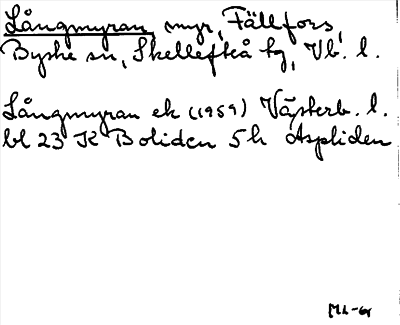 Långmyran, myr, Fällfors,
Byske sn, Skellefteå tg, Vb. l.
Långmyran ek (1959) Västerb. l.
bl 23 K Boliden 5h Aspliden